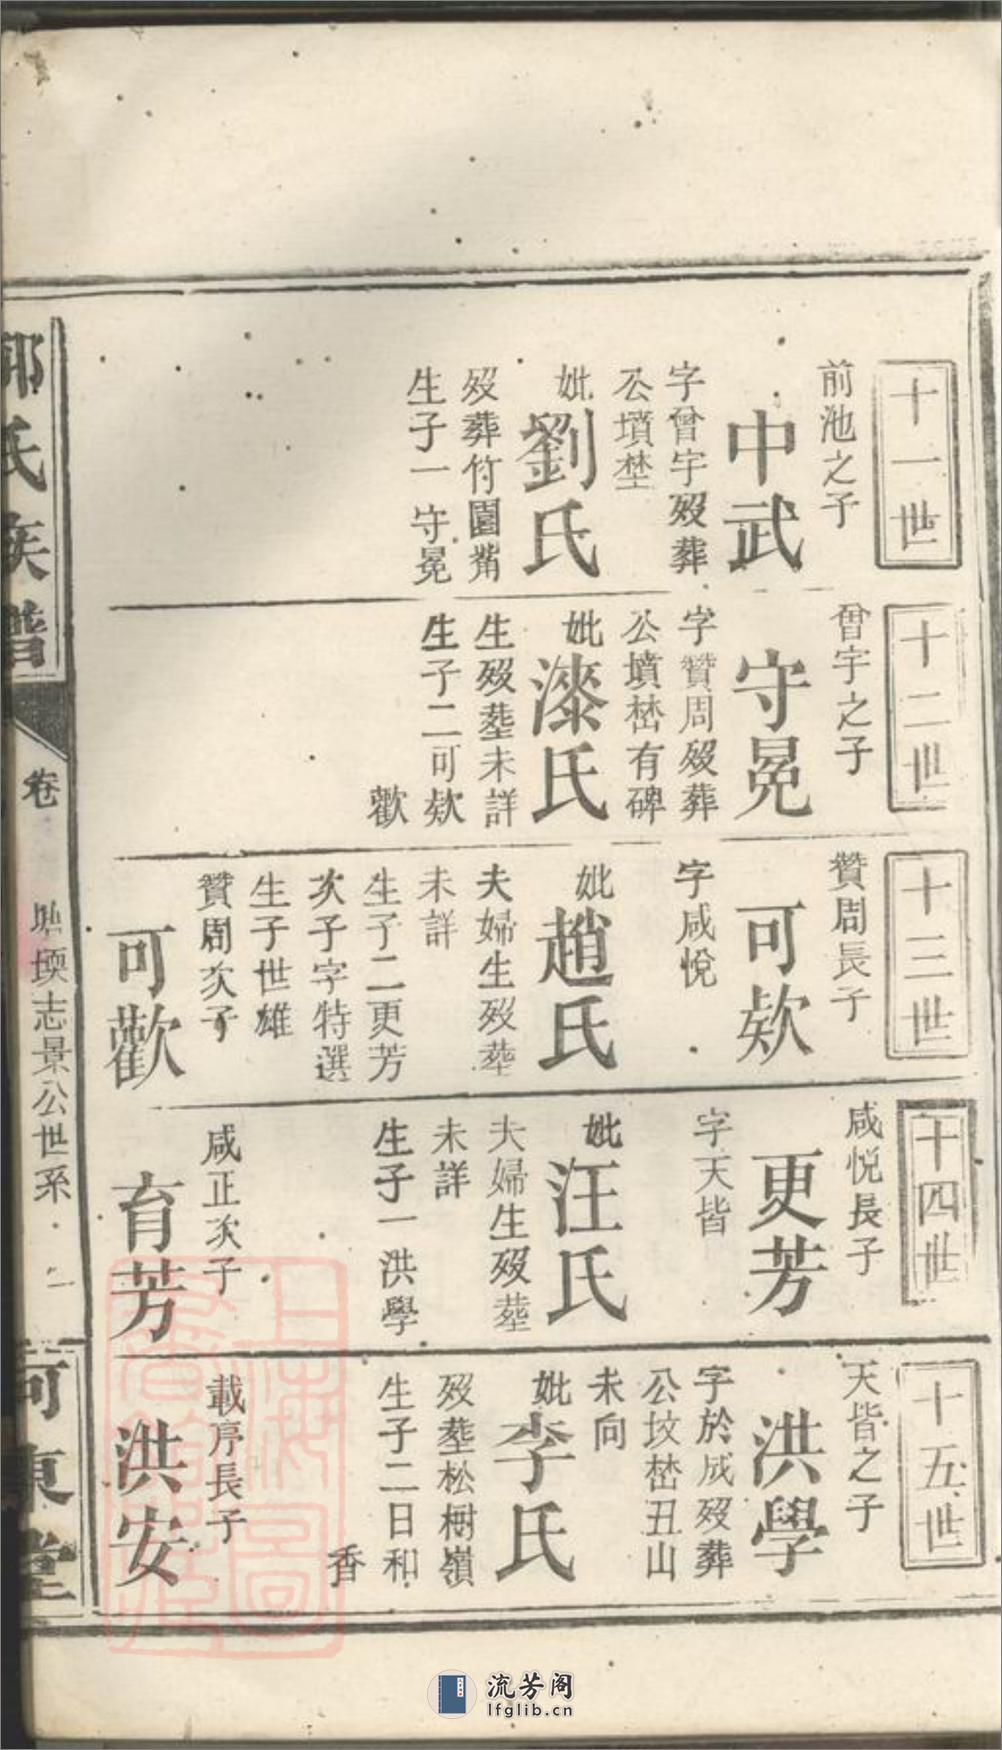 十一世
前池之子
中武
字曾宇歿葬
公墳埜
妣
劉氏
歿葬竹園嘴
生子一守冕
十二世
曾宇之子
守冕
字贊周歿葬
公墳埜有碑
妣
漆氏
生歿塟未詳
生子二可欸
歡
十三世
贊周長子
可欸
字咸悅
妣
趙氏
夫婦生歿塟
未詳
生子二更芳
次子字特選
生子世雄
贊周次子
可歡
十四世
咸悅長子
更芳
字天皆
妣
汪氏
夫婦生歿塟
未詳
生子一洪學
咸正次子
育芳
十五世
天皆之子
洪學
字於成歿葬
公坟埜丑山
未向
妣
李氏
歿塟松樹嶺
生子二日和
香
載序長子
洪安
郭氏族譜
卷
志景公世系
河東堂
上海圖書館藏
流芳阁
lfglib.cn